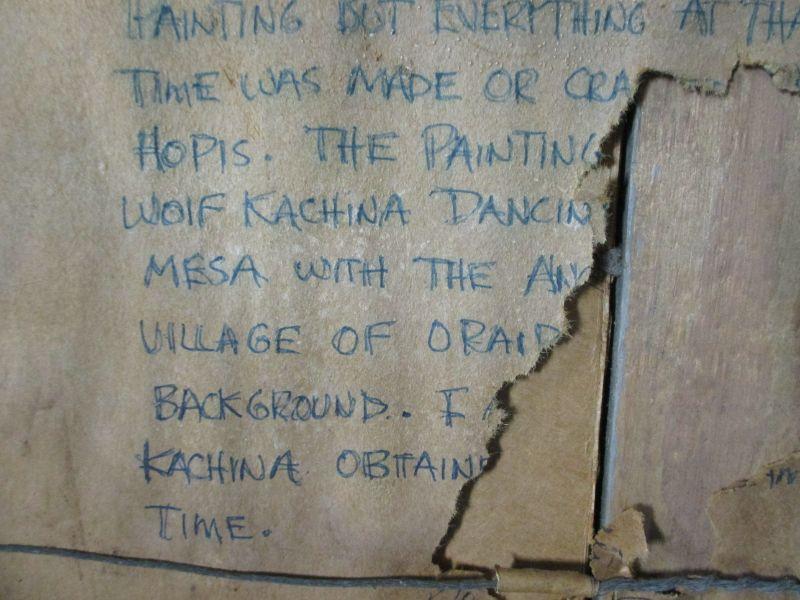 PAINTING BUT EVERYTHING AT THA
TIME WAS MADE OR CRA
HOPIS. THE PAINTING
WOLF KACHINA DANCIN
MESA WITH THE AN
VILLAGE OF ORAIB
BACKGROUND.. I
KACHINA OBTAINE
TIME.